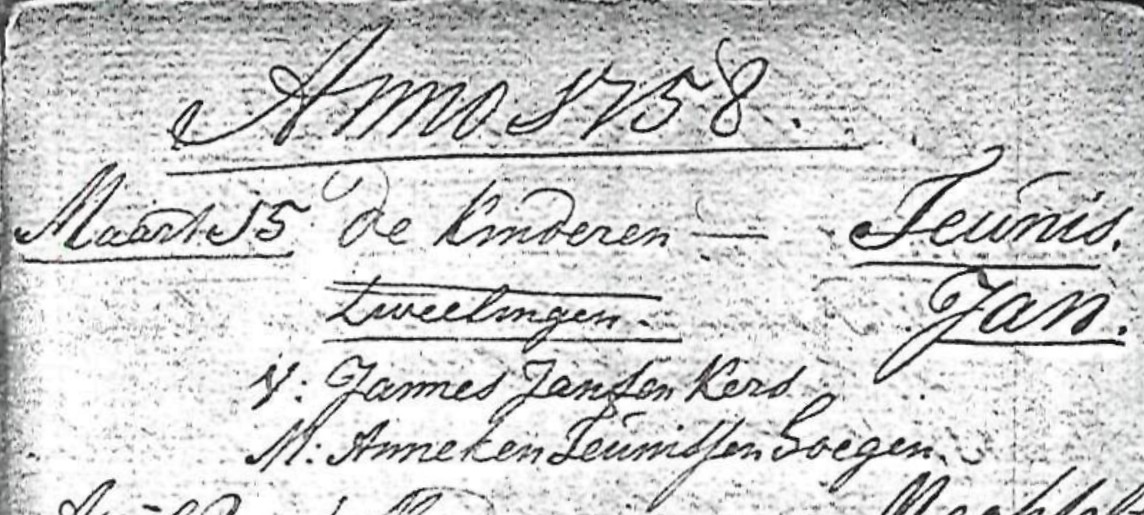 Anno 1758.
Maart 15 de kinderen — Teunis.
tweelingen. Jan.
V: Jannes Jansen Kers
M: Anneken Teunissen Soegen.